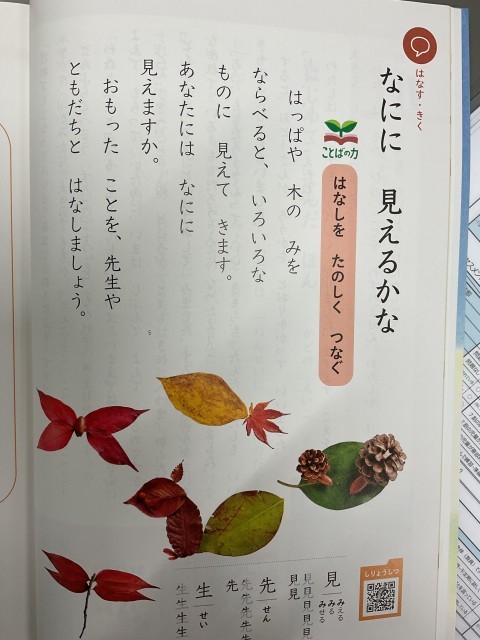 はなす・きく
なにに 見えるかな
ことばの力
はなしを たのしく つなぐ
はっぱや 木の みを
ならべると、いろいろな
ものに 見えて きます。
あなたには なにに
見えますか。
おもった ことを、先生や
ともだちと はなしましょう。
しりょうしつ
見 みえる
みる
みせる
見見見見見
見見
先 せん
先先先先先
先
生 せい
生生生生